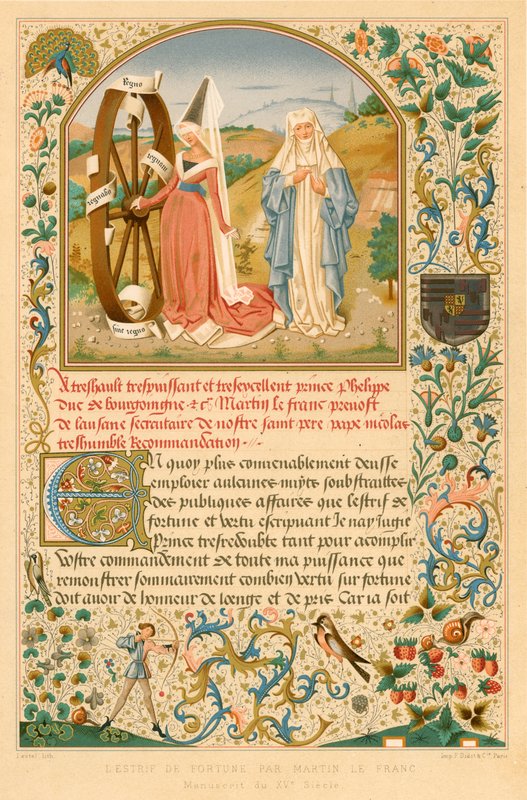 Regno
regnavi
regnabo
sine regno
A treshault trespuissant et tresexcellent prince Phelipe
duc de bourgoingne &c. Martin le franc prevost
de lausane secretaire de nostre saint pere pape nicolas
treshumble Recommandation
En quoy plus convenablement deusse
emploier aulcunes nuyts soubstraittes
des publiques affaires que lestrif de
fortune et vertu escripvant Je nay jugie
Prince tresredoubte tant pour acomplir
vostre commandement de toute ma puissance que
remonstrer sommairement combien vertu sur fortune
doit avoir de honneur de loenge et de pris Car ia soit
Lestel lith.
Imp. F. Didot & Cie. Paris
L'ESTRIF DE FORTUNE PAR MARTIN LE FRANC
Manuscrit du XVe Siècle.